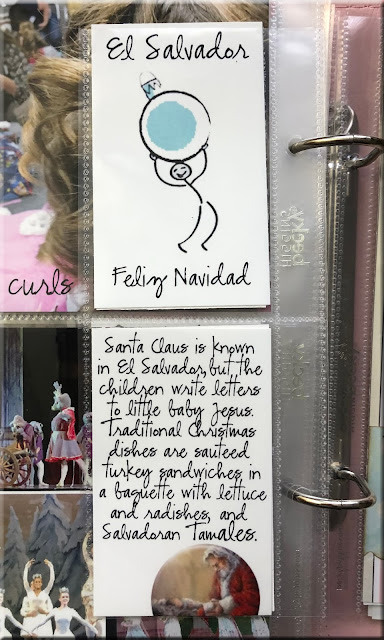 El Salvador
Feliz Navidad
curls
Santa Claus is known
in El Salvador, but the
children write letters
to little baby Jesus.
Traditional Christmas
dishes are sauteed
turkey sandwiches in
a baguette with lettuce
and radishes, and
Salvadoran Tamales.
becky
higgins